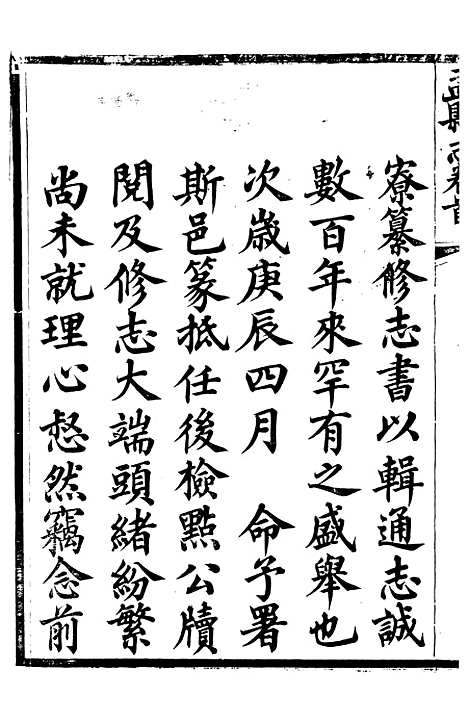 寮纂修志書以輯通志誠
數百年來罕有之盛舉也
次歲庚辰四月　命予署
斯邑篆抵任後檢點公牘
閱及修志大端頭緒紛繁
尚未就理心怒然竊念前
盂縣志卷首